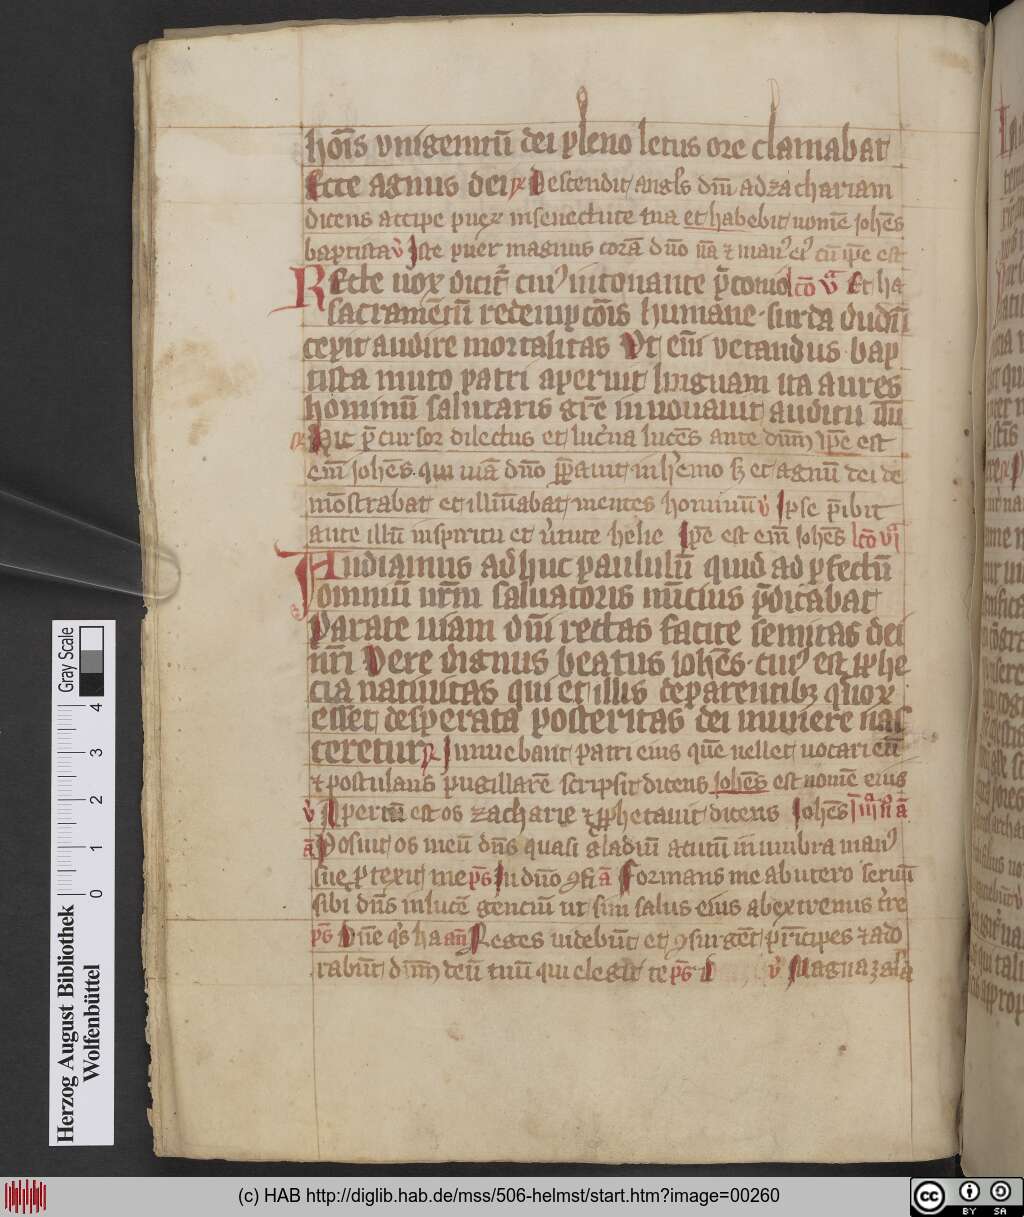 hoīs vnigenitū dei pleno letus ore clamabat
Ecce agnus dei ꝶ Descendit angls dn̄i ad zachariam
dicens accipe puerꝫ in senectute tua et habebit nomē ioh̄es
baptista v̓ Iste puer magnus corā dn̄o nā ⁊ manꝰ eiꝰ cū ipē est
Recte uox dicit᷑ cuiꝰ intonante p̄conio lc̄o vͣ Et ha
sacramētū redempc̄ois humane surda audiū
cepit audire mortalitas Vt em̄ vetandus bap
tista muto patri aperuit linguam ita aures
hominū salutaris gr̄e innouauit auditū dū
ꝶ Hic p̄cursor dilectus et luc̓na lucēs ante dn̄m Ip̄e est
em̄ ioh̄es. qui uiā dn̄o p̄pauit in h̓emo sꝫ et agnū dei de
mōstrabat et illūīabat mentes hominū v̓ Ipse p̄ibit
ante illū in spiritu et v̓tute helie Ip̄e est em̄ ioh̄es lc̄o vıͣ
Audiamus adhuc paululū quid ad ꝓfectū
omniū nr̄m saluatoris nūcius p̄dicabat
Parate uiam dn̄i rectas facite semitas dei
nr̄i Vere dignus beatus ioh̄es. cuiꝰ est sp̄he
cia natiuitas qui et illis de parentibꝫ quoꝝ
esset desperata posteritas dei munere nas
ceretur ꝶ Innuebant patri eius quē uellet uocari eū
⁊ postulans pugillarē scripsit dicens Ioh̄es est nomē eius
v̓ Apertū est os zacharie ⁊ p̄phetauit dicens Ioh̄es
ā Posuit os meū dn̄s quasi gladiū acutū in umbra manꝰ
sue ꝓtexit me p̄s In dn̄o ꝯfi ā Formans me ab utero seruū
sibi dn̄s in lucē genciū ut sim salus eius ab extremis t̓re
p̄s Dn̄e q̓s ha an̄ Reges uidebūt et ꝯsurgēt pr̄īcipes ⁊ ado
rabūt dn̄m deū tuū qui elegit te p̄s D v̓ Magna ꝫ a
Herzog August Bibliothek
Wolfenbüttel
Gray Scale
0 1 2 3 4
(c) HAB http://diglib.hab.de/mss/506-helmst/start.htm?image=00260
cc BY SA